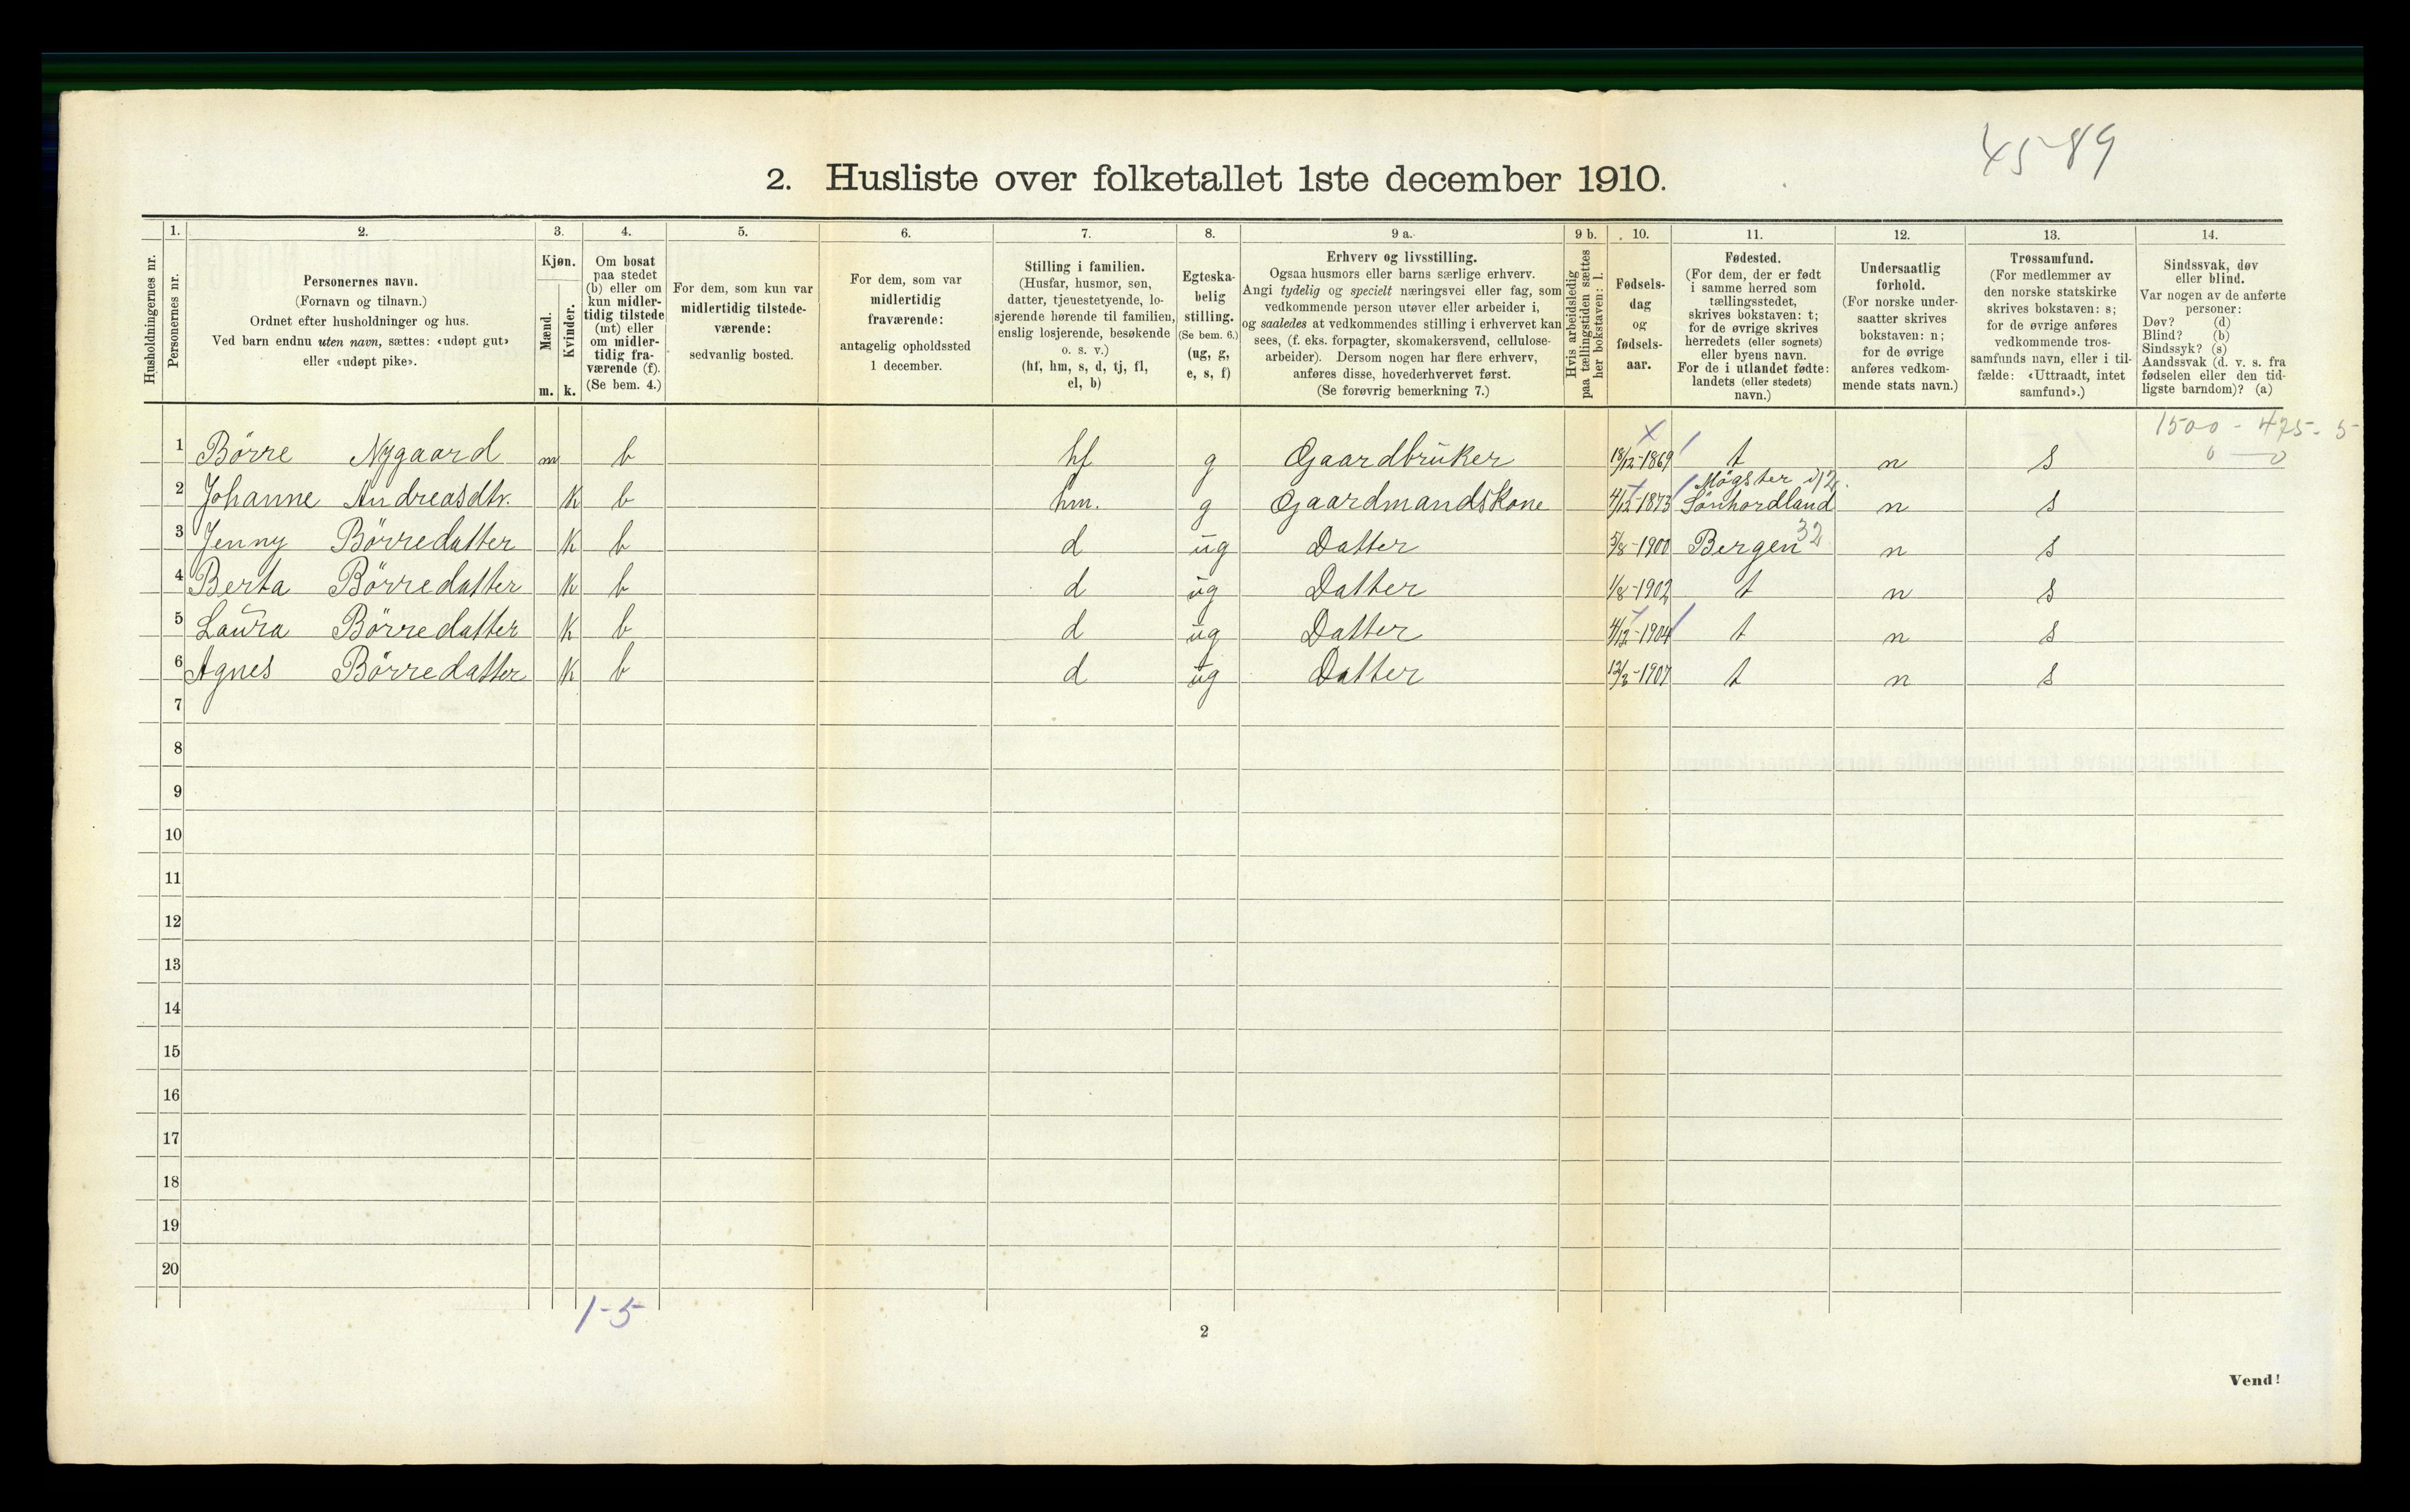 45-89
2. Husliste over folketallet 1ste december 1910.
1. 2. 3. 4. 5. 6. 7. 8. 9 a. 9 b. 10. 11. 12. 13. 14.
Husholdningernes nr.
Personernes nr.
Personernes navn.
(Fornavn og tilnavn.)
Ordnet efter husholdninger og hus.
Ved barn endnu uten navn, sættes: «udøpt gut»
eller «udøpt pike».
Kjøn.
Mænd.
Kvinder.
m. k.
Om bosat
paa stedet
(b) eller om
kun midler-
tidig tilstede
(mt) eller
om midler-
tidig fra-
værende (f).
(Se bem. 4.)
For dem, som kun var
midlertidig tilstede-
værende:
sedvanlig bosted.
For dem, som var
midlertidig
fraværende:
antagelig opholdssted
1 december.
Stilling i familien.
(Husfar, husmor, søn,
datter, tjenestetyende, lo-
sjerende hørende til familien,
enslig losjerende, besøkende
o. s. v.)
(hf, hm, s, d, tj, fl,
el, b)
Egteska-
belig
stilling.
(Se bem. 6.)
(ug, g,
e, s, f)
Erhverv og livsstilling.
Ogsaa husmors eller barns særlige erhverv.
Angi tydelig og specielt næringsvei eller fag, som
vedkommende person utøver eller arbeider i,
og saaledes at vedkommendes stilling i erhvervet kan
sees, (f. eks. forpagter, skomakersvend, cellulose-
arbeider). Dersom nogen har flere erhverv,
anføres disse, hovederhvervet først.
(Se forøvrig bemerkning 7.)
Hvis arbeidsledig
paa tællingstiden sættes
her bokstaven: l.
Fødsels-
dag
og
fødsels-
aar.
Fødested.
(For dem, der er født
i samme herred som
tællingsstedet,
skrives bokstaven: t;
for de øvrige skrives
herredets (eller sognets)
eller byens navn.
For de i utlandet fødte:
landets (eller stedets)
navn.)
Undersaatlig
forhold.
(For norske under-
saatter skrives
bokstaven: n;
for de øvrige
anføres vedkom-
mende stats navn.)
Trossamfund.
(For medlemmer av
den norske statskirke
skrives bokstaven: s;
for de øvrige anføres
vedkommende tros-
samfunds navn, eller i til-
fælde: «Uttraadt, intet
samfund».)
Sindssvak, døv
eller blind.
Var nogen av de anførte
personer:
Døv? (d)
Blind? (b)
Sindssyk? (s)
Aandssvak (d. v. s. fra
fødselen eller den tid-
ligste barndom)? (a)
1500 - 425 - 5-
0 — 0
1 Börre Nygaard m b hf g Gaardbruker 18/12-1869 t n s
Mögster i
2 Johanne Andreasdtr. k b hm. g Gaardmandskone 4/12-1873 Sönhordland n s
3 Jenny Börredatter k b d ug Datter 5/8-1900 Bergen 32 n s
4 Berta Börredatter k b d ug Datter 1/8-1902 t n s
5 Laura Börredatter k b d ug Datter 4/12-1904 t n s
6 Agnes Börredatter k b d ug Datter t n s
7
8
9
10
11
12
13
14
15
16
17
18
19
20
1-5
2
Vend!